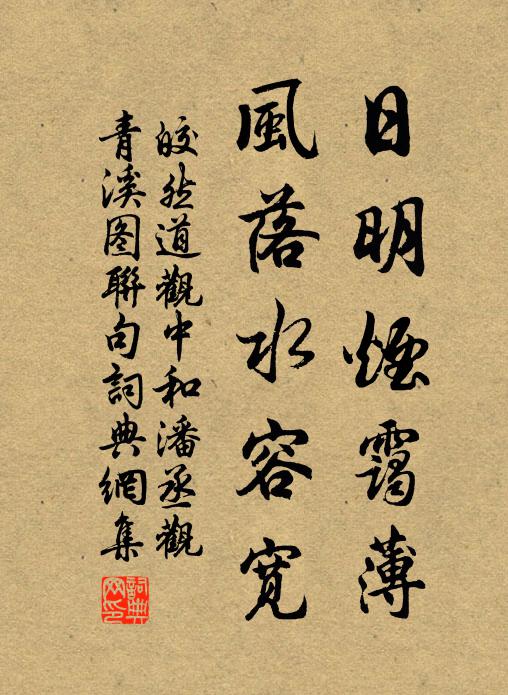 日明煙靄薄
風落水容寬
皎然道觀中和潘丞觀
青溪图聯句詞典網集
詞典网印